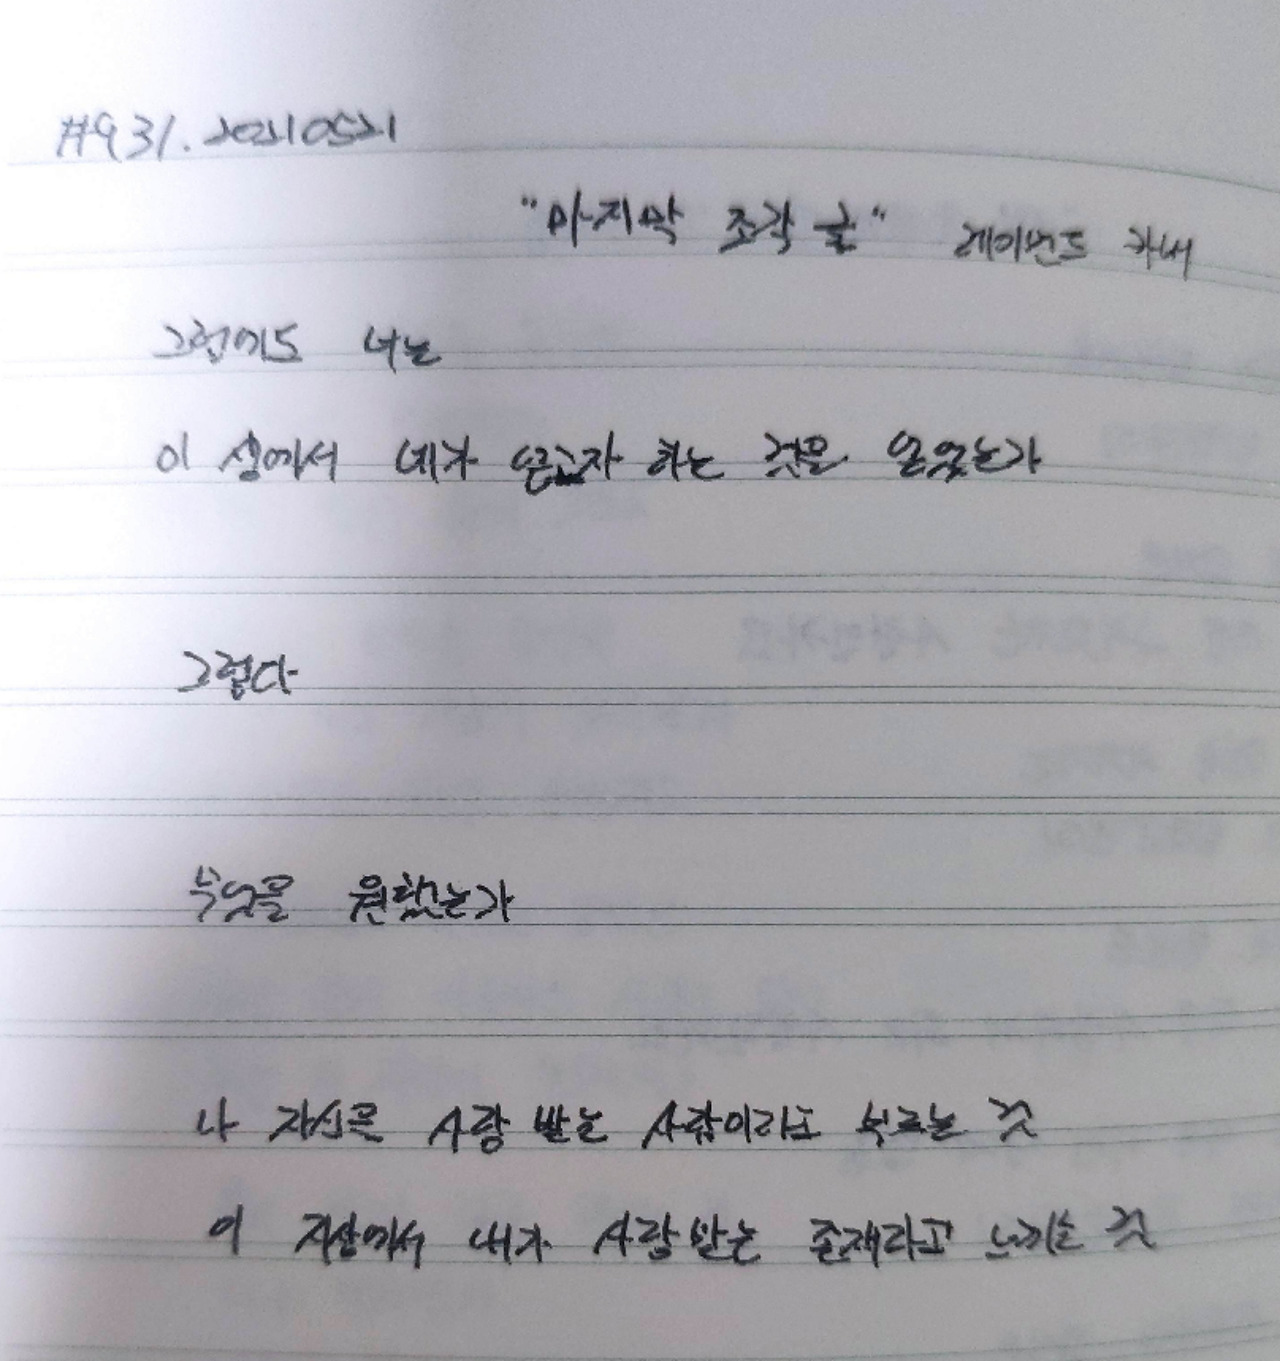 #931. 20210521
"마지막 조각 글" 레이먼드 카버
그럼에도 너는
이 생에서 네가 얻고자 하는 것을 얻었는가
그렇다
무엇을 원했는가
나 자신을 사랑 받는 사람이라고 부르는 것
이 지상에서 내가 사랑 받는 존재라고 느끼는 것